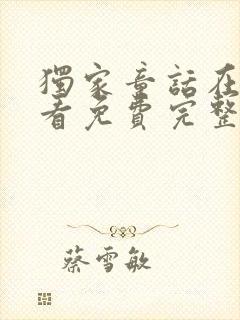 獨家童話在
看免費完整
蔡雪敏